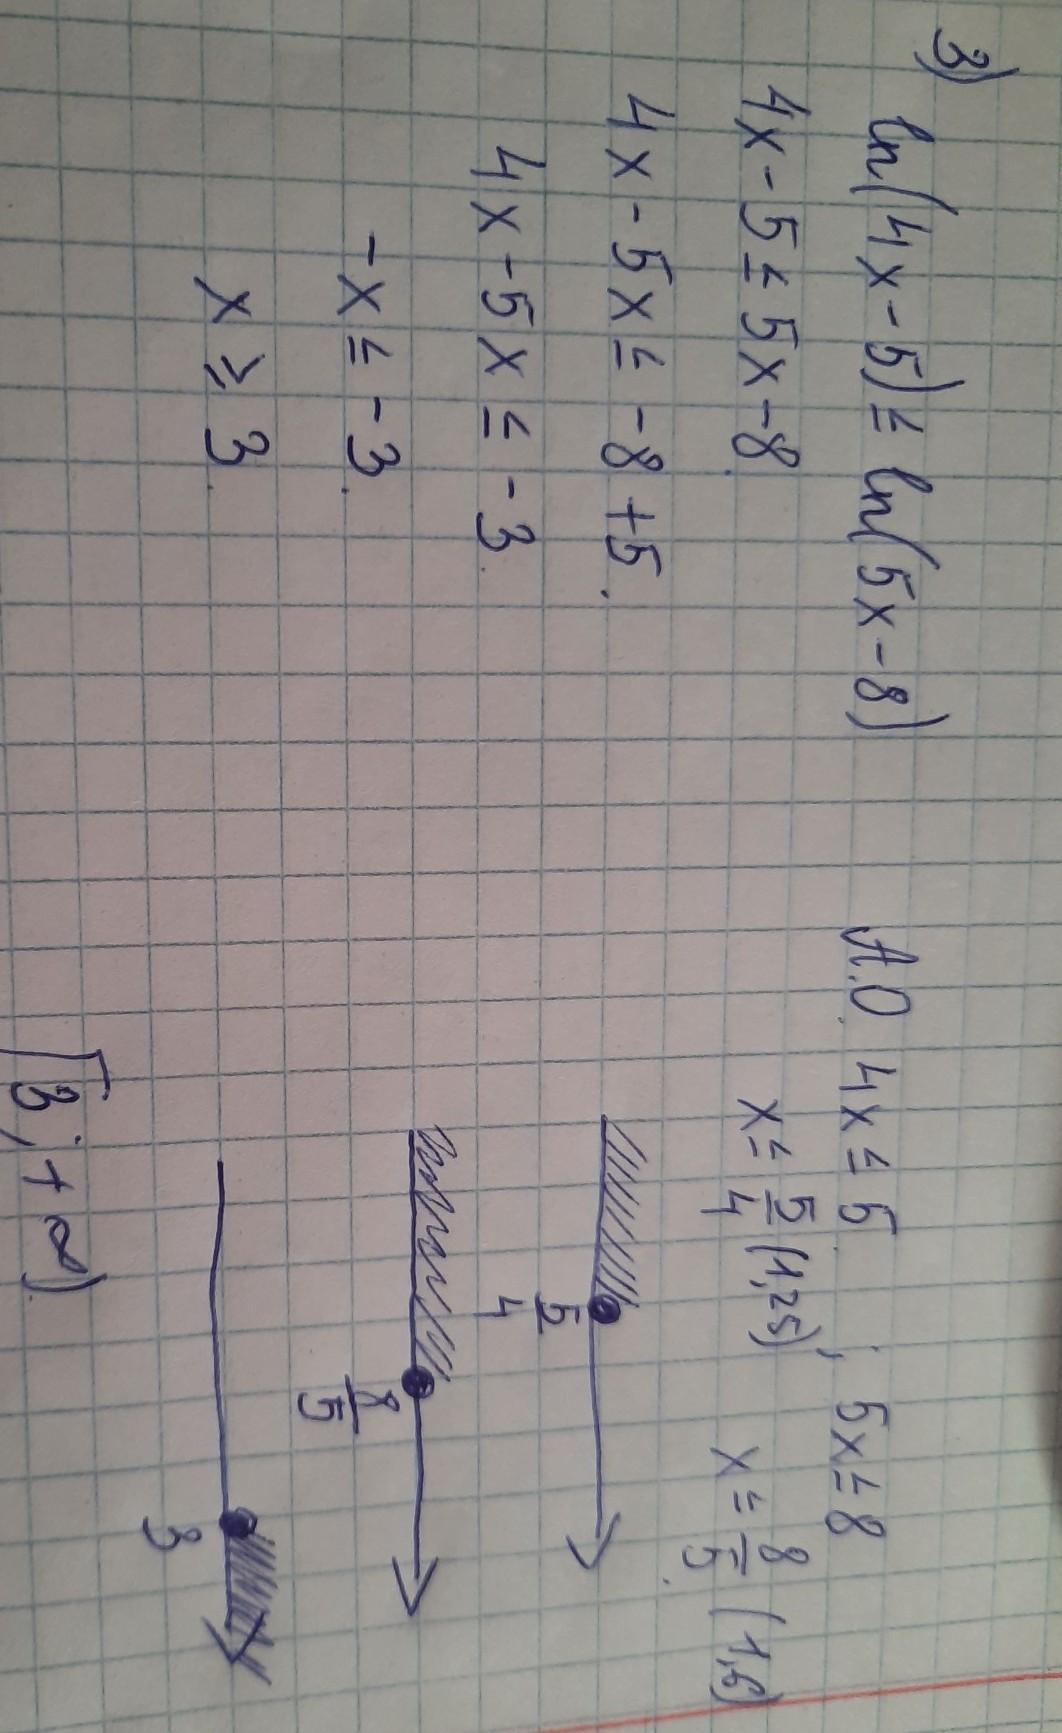 3) ln(4x-5) ≤ ln(5x-8)
4x-5 ≤ 5x-8
4x-5x ≤ -8+5.
4x-5x ≤ -3
-x ≤ -3.
x ≥ 3.
A.O. 4x ≤ 5 ; 5x ≤ 8
x ≤ 5/4 (1,25), x ≤ 8/5 (1,6)
5/4
8/5
3
[3; +∞).